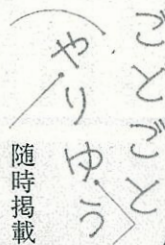 ごとごと
やりゆう
随時掲載